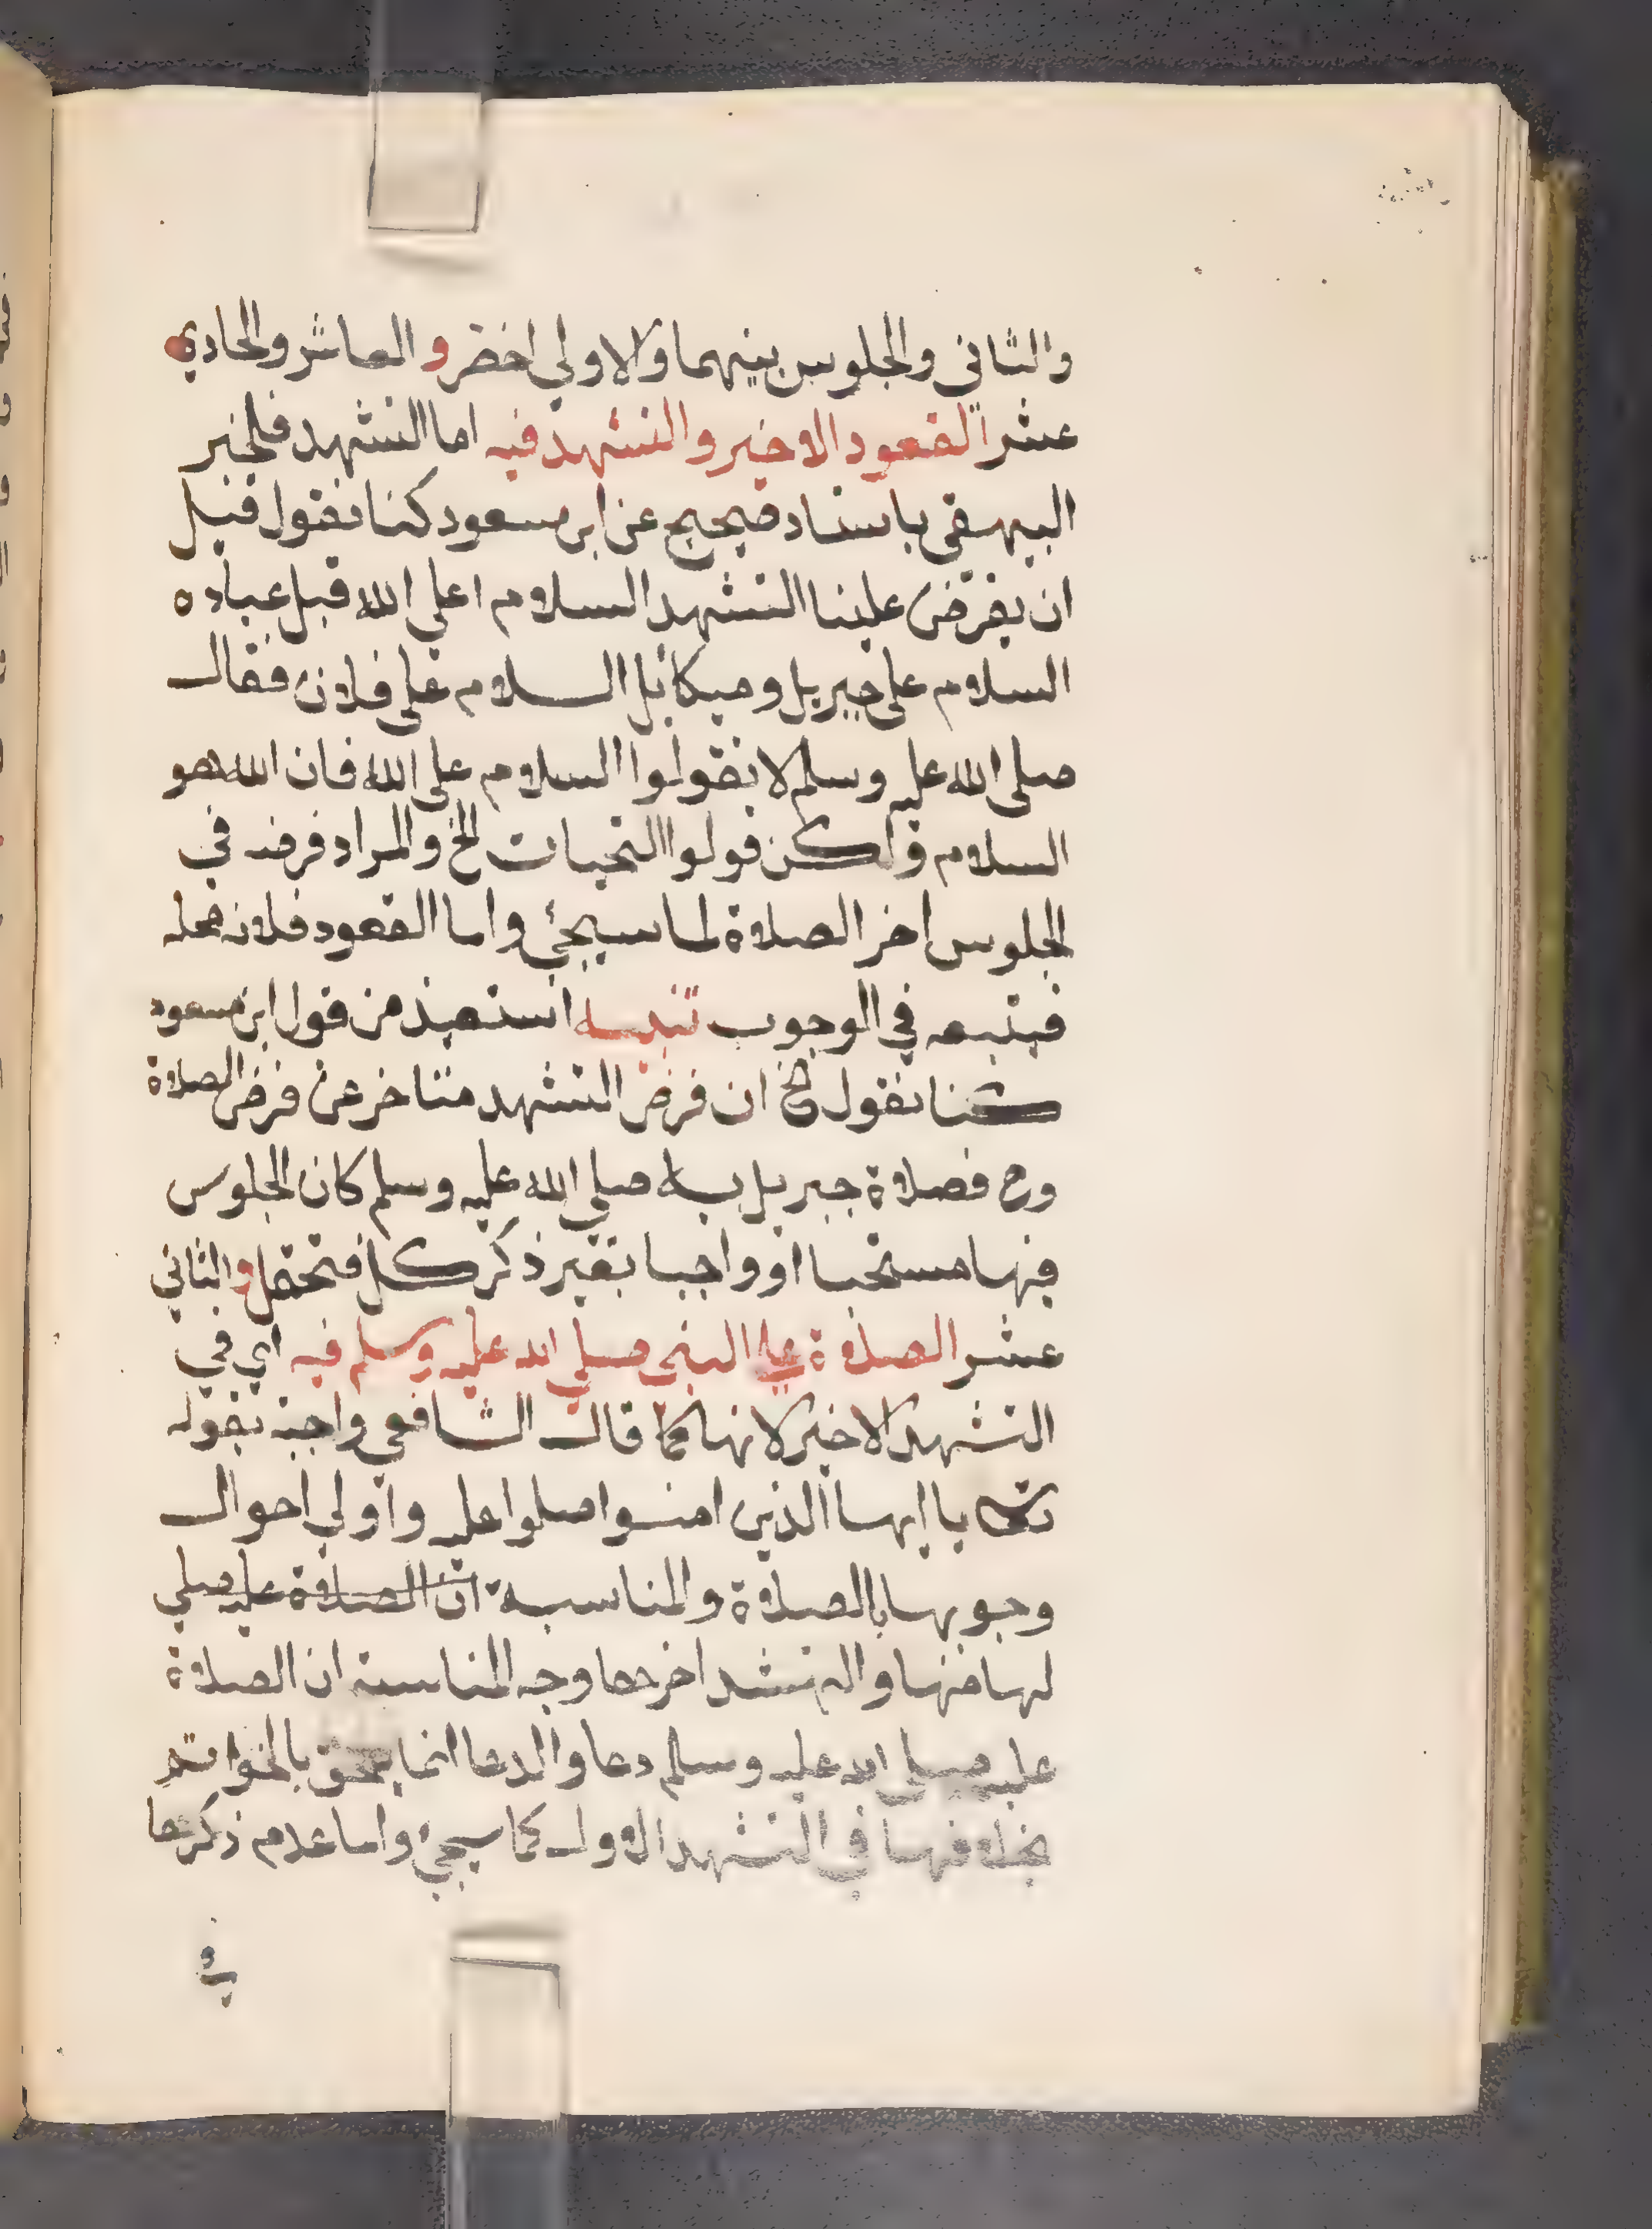 والثاني والجلوس بينهما والاولي اخضر والعاشر والحادي
عشر القعود الاخير والتشهد فيه اما التشهد فلخبر
البيهقي باسناد صحيح عن ابن مسعود كنا نقول قبل
ان يفرض علينا التشهد السلام اعلي الله قبل عباده
السلام على جبريل وميكائيل السلام على فلان فقال
صلى الله عليه وسلم لا تقولوا السلام على الله فان الله هو
السلام ولكن قولوا التحيات الخ والمراد فرضه في
الجلوس اخر الصلاة لما سيجئ واما القعود فلانه محله
فيتبعه في الوجوب تنبيه استفيد من قول ابن مسعود
كنا نقول الخ ان فرض التشهد متاخر عن فرض الصلاة
وح فصلاة جبريل به صلي الله عليه وسلم كان الجلوس
فيها مستحبا او واجبا بغير ذكر كل محتمل والثاني
عشر الصلاة علي النبي صلي الله عليه وسلم فيه اي في
التشهد الاخير لانها كما قال الشافعي واجبة بقوله
تعالى يا ايها الذين امنوا صلوا عليه واولي احوال
وجوبها بالصلاة والمناسبة ان الصلاة عليه صلي
لها منها والتشهد اخرها وجه المناسبة ان الصلاة
عليه صلى الله عليه وسلم دعا والدعا انما يحق بالخواتم
بخلافها في التشهد الاول كما سيجئ واما عدم ذكرها
في